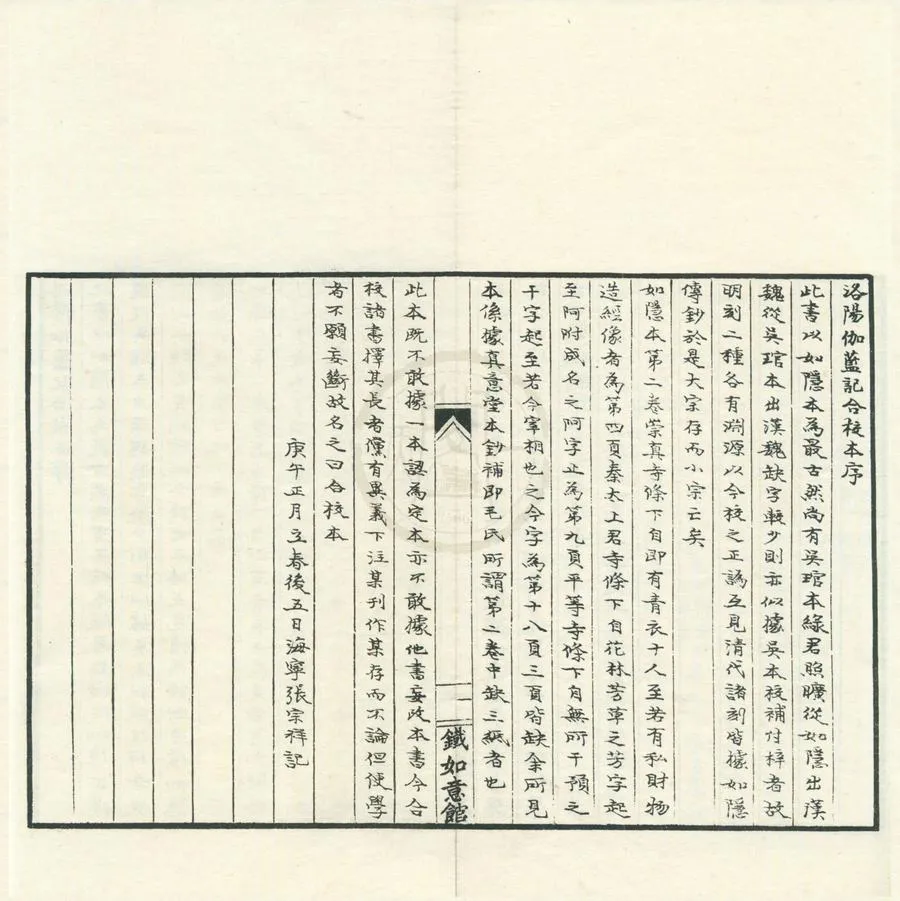 洛陽伽藍記合校本序
此書以如隱本為最古然尚有吳琯本綠君照曠從如隱出漢
魏從吳琯本出漢魏缺字較少則亦似據吳本校補付梓者故
明刻二種各有淵源以今校之正譌互見清代諸刻皆據如隱
傳鈔於是大宗存而小宗亡矣
如隱本第二卷崇真寺條下自即有青衣十人至若有私財物
造經像者為第四頁秦太上君寺條下自花林芳草之芳字起
至阿附成名之阿字止為第九頁平等寺條下自無所干預之
干字起至若今宰相也之今字為第十八頁三頁皆缺余所見
本係據真意堂本鈔補即毛氏所謂第二卷中缺三紙者也
鐵如意館
此本既不敢據一本認為定本亦不敢據他書妄改本書今合
校諸書擇其長者儻有異義下注某刊作某存而不論但使學
者不願妄斷故名之曰合校本
庚午正月立春後五日海寧張宗祥記